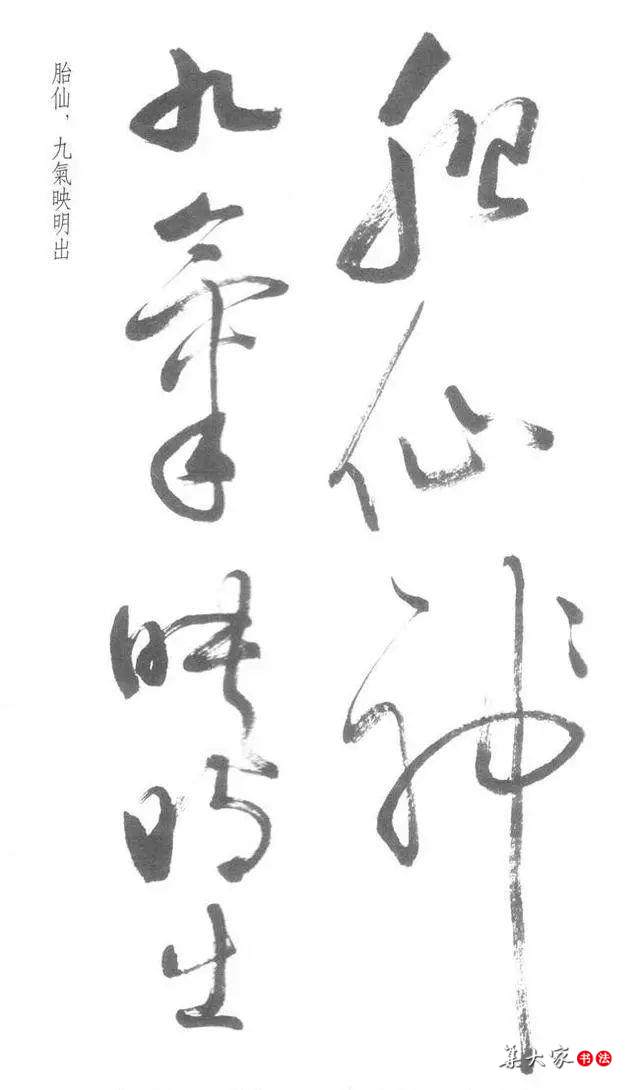 胎仙神
九氣映明出
胎仙，九氣映明出
集大家书法